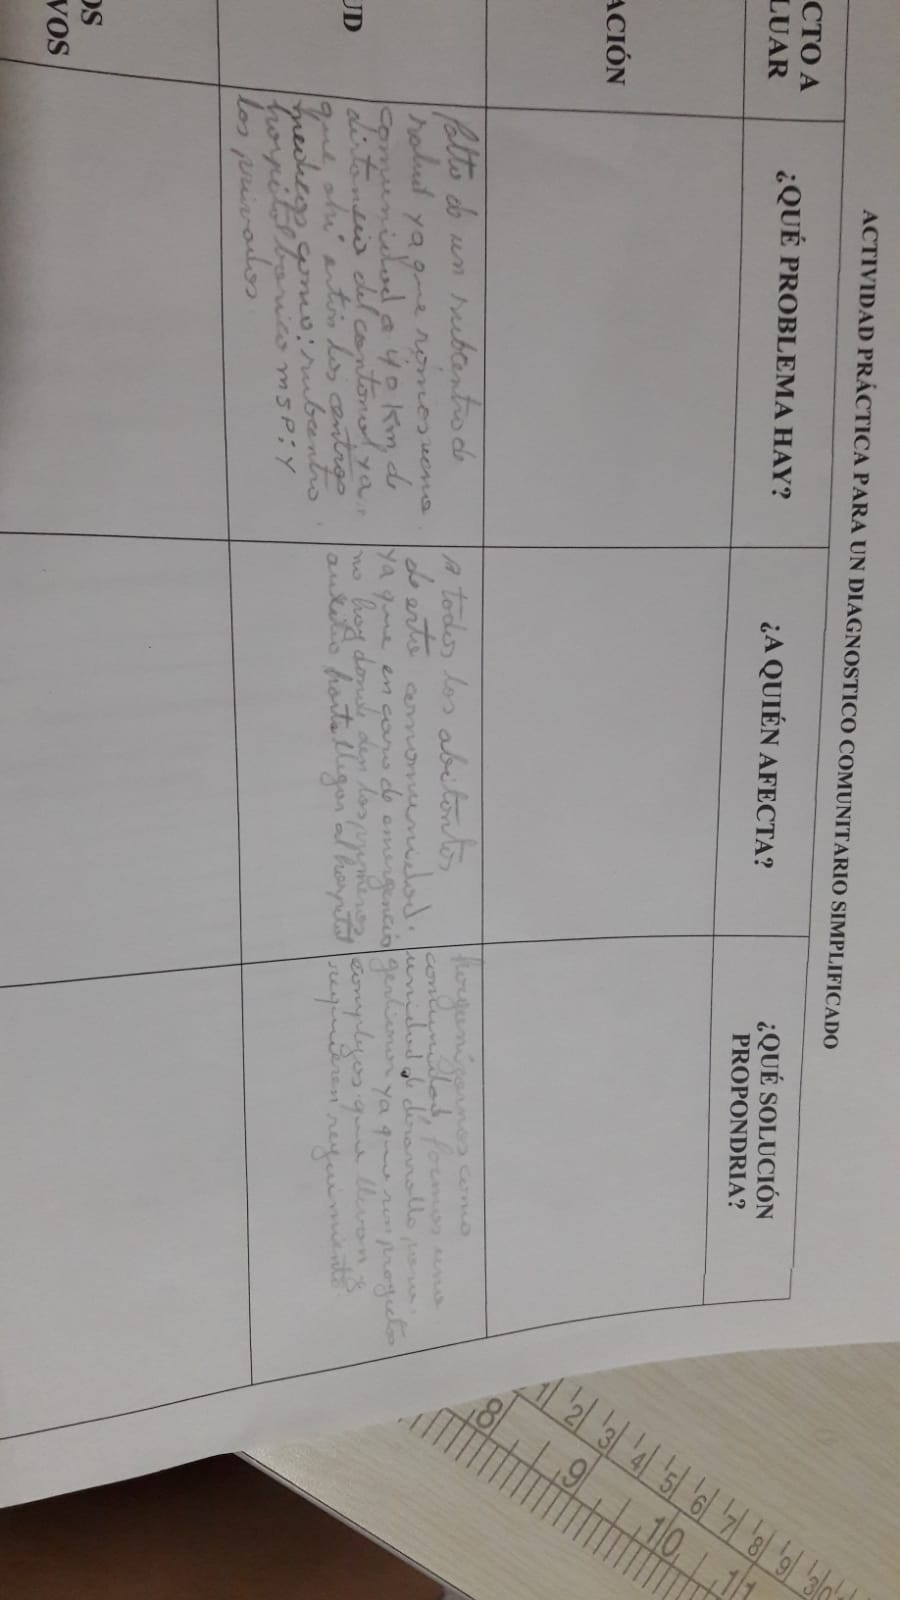 ACTIVIDAD PRÁCTICA PARA UN DIAGNOSTICO COMUNITARIO SIMPLIFICADO
CTO A
LUAR
¿QUÉ PROBLEMA HAY?
¿A QUIÉN AFECTA?
¿QUÉ SOLUCIÓN
PROPONDRIA?
ACIÓN
UD
falto de un subcentro de
salud ya que somos una
comunidad a 40 Km de
distancia del cantonal ya
que ahi estan los centros
medicos como: subcentro
hospital basico MSP; y
los privados
A todos los abitantes
de esta comomunidad.
ya que en caso de emergencia
no hay donde den los primeros
auxilio hasta llegar al hospital
horganizarnos como
comunidad, formos una
unidad de desarrollo para
gestionar ya que son proyectos
complejos que llevan y
requieren seguimiento
OS
VOS
2 3 4 5 6 7 8 9 30
8 9 10 11